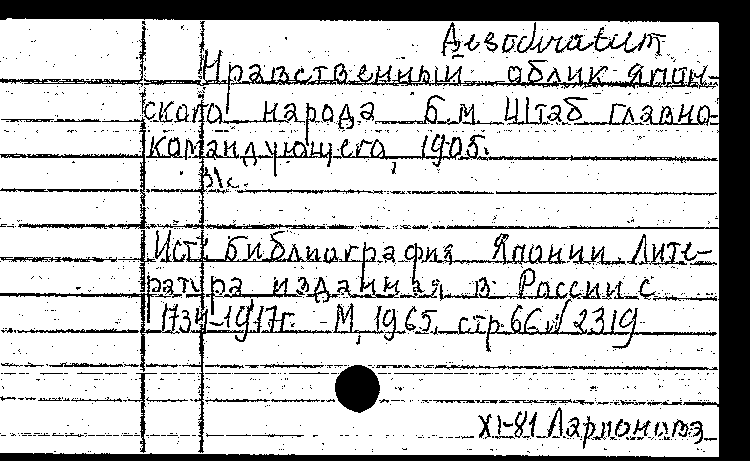 Desodiratum
Нравственный облик япон-
ского народа Б.м. Штаб главно-
командующего, 1905.
31с.
Ист: Библиография Японии. Лите-
ратура изданная в России с
1734-1917г. М, 1965. стр 66 № 2319
XI-81